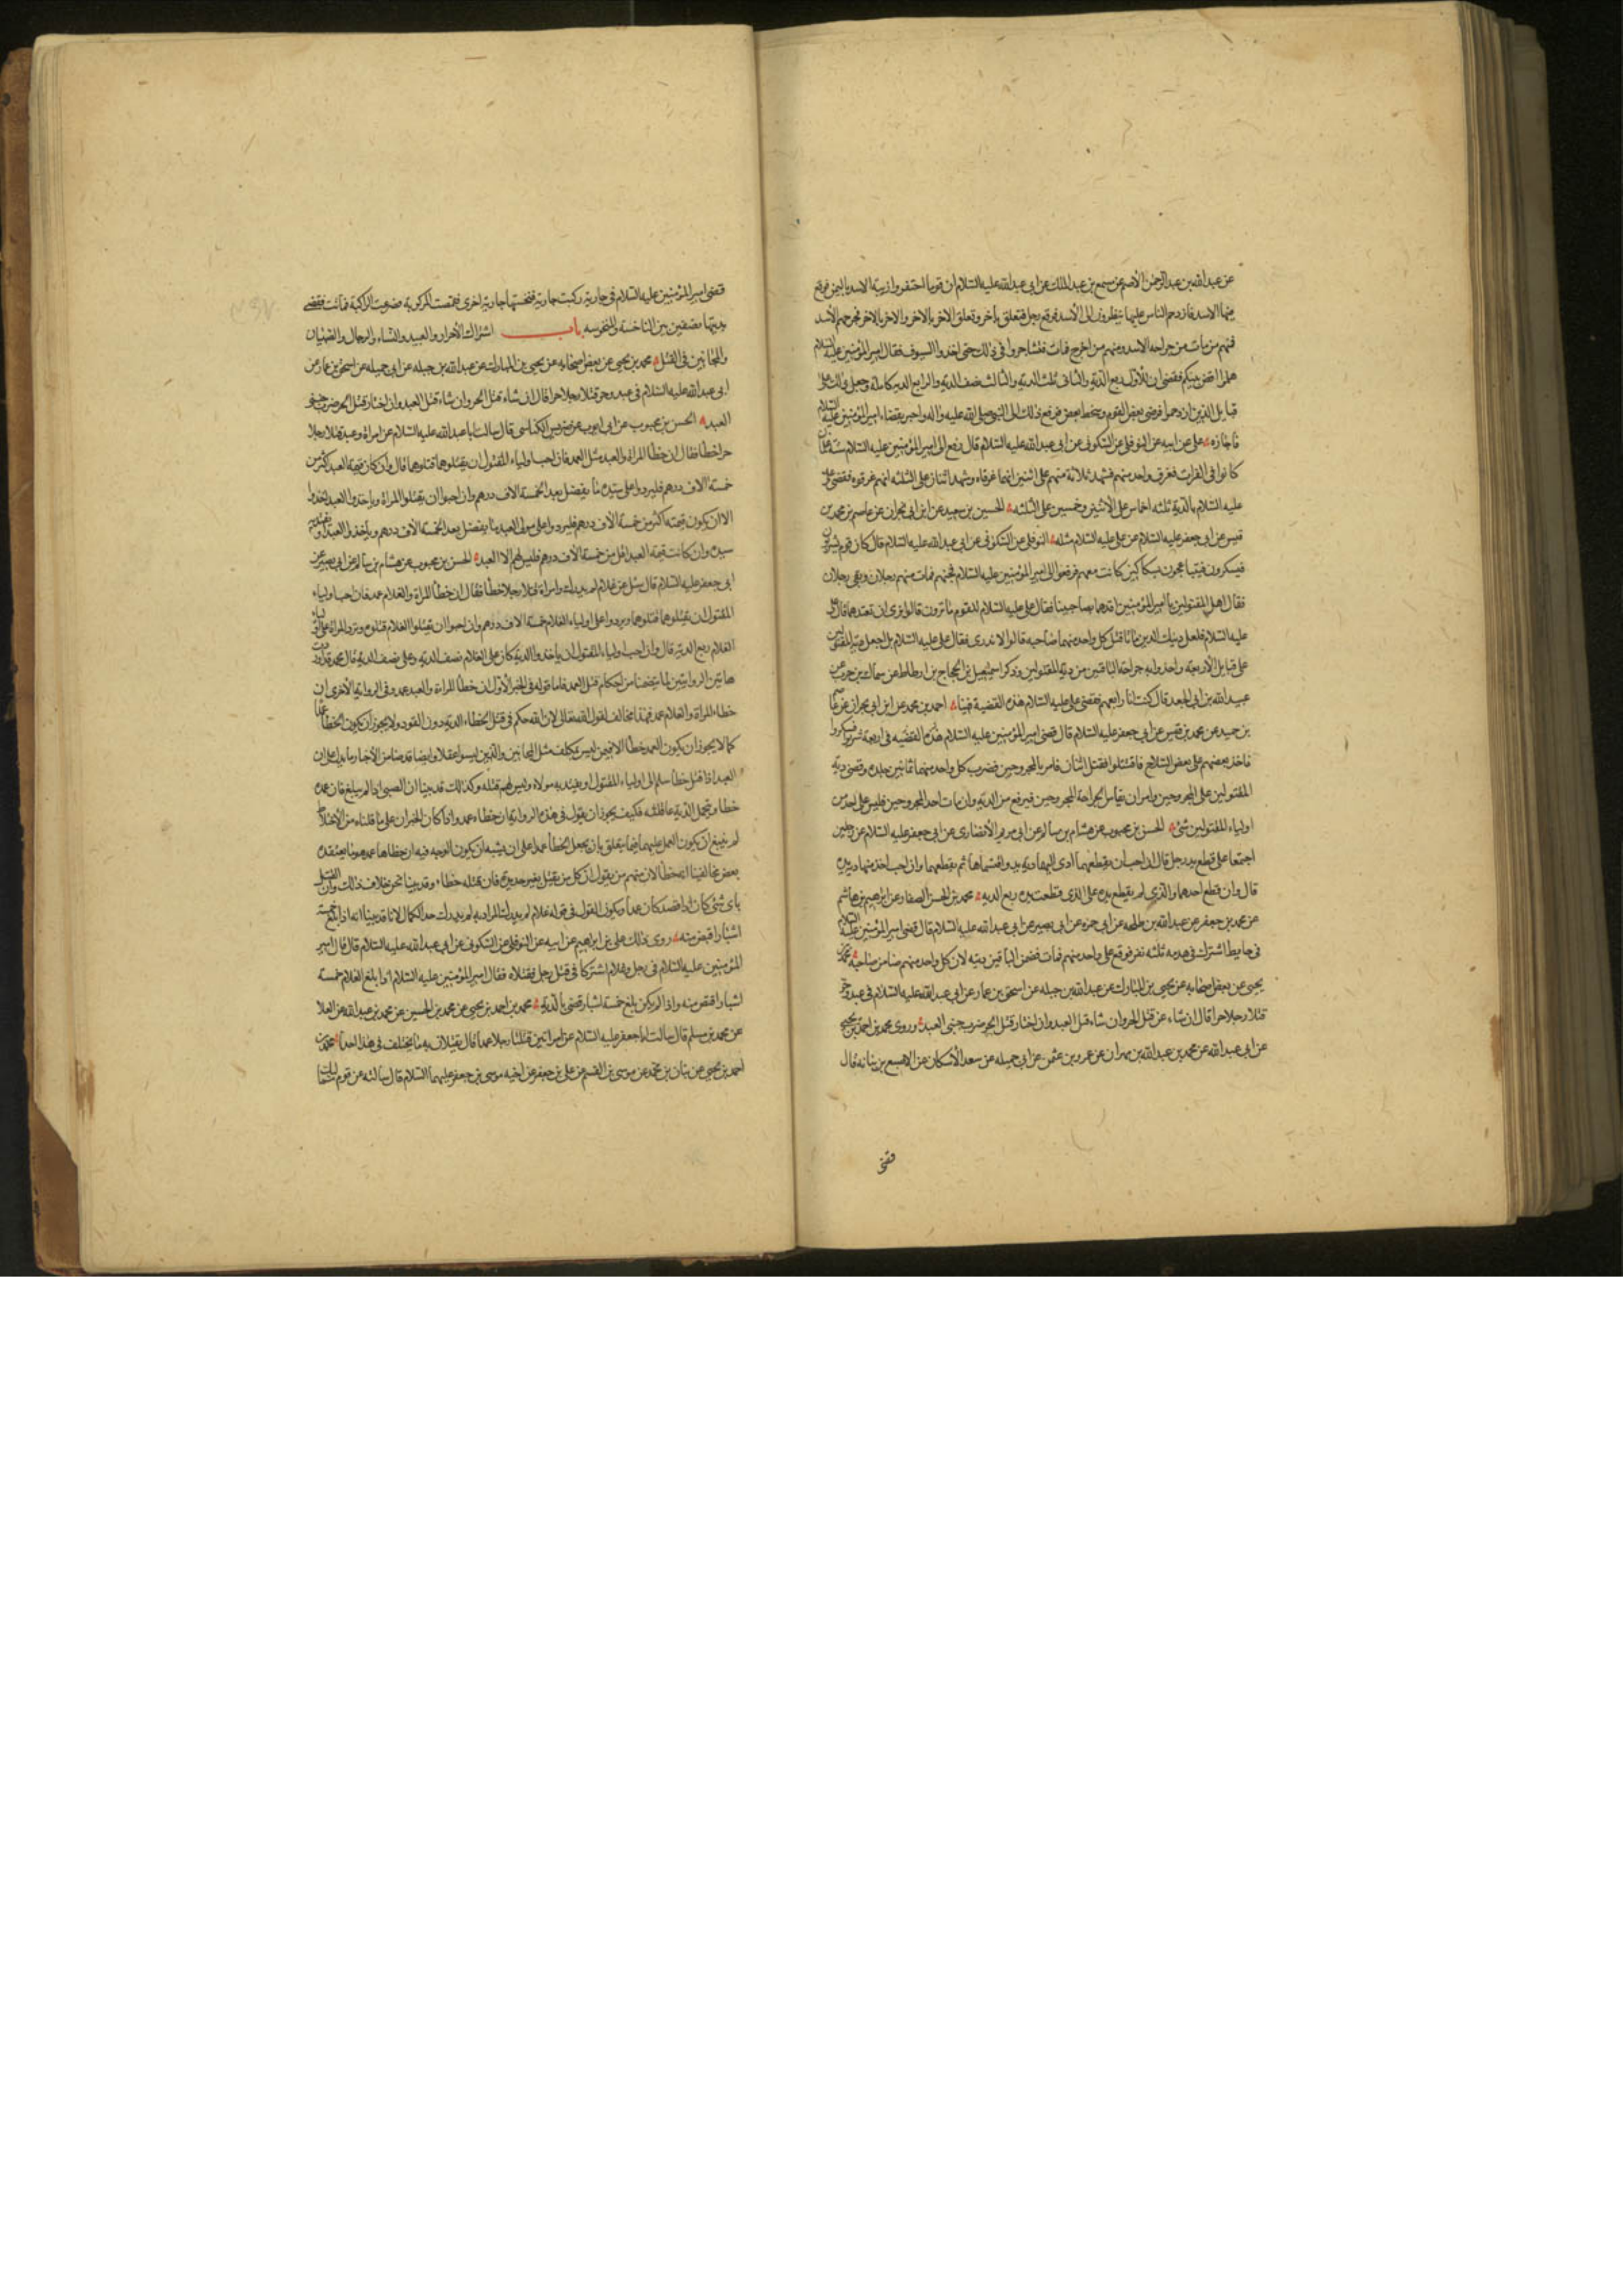 عن عبدالله بن عبدالرحمن الأصم عن مسمع بن عبدالملك عن ابى عبدالله عليه السلام ان قوما احتفروا زبية الاسد باليمن فوقع
فيها الاسد فازدحم الناس عليها ينظرون الى الأسد فوقع رجل فتعلق بآخر وتعلق الاخر بالاخر والاخر بالاخر فجرحهم الأسد
فمنهم من مات من جراحه الاسد ومنهم من اخرج فمات فتشاجروا فى ذلك حتى اخذوا السيوف فقال امير المؤمنين عليه السلام
هلموا اقض بينكم فقضى ان للأول ربع الدية والثانى ثلث الدية والثالث نصف الدية والرابع الدية كاملة وجعل ذلك على
قبايل الذين ازدحموا فرضى بعض القوم وسخط بعض فرفع ذلك الى النبى صلى الله عليه واله واخبر بقضاء امير المؤمنين عليه السلام
فاجازه على عن ابيه عن النوفلى عن السكونى عن ابى عبدالله عليه السلام قال رفع الى امير المؤمنين عليه السلام ستة غلمان
كانوا فى الفرات فغرق واحد منهم فشهد ثلاثة منهم على اثنين انهما غرقاه وشهد اثنان على الثلثه انهم غرقوه فقضى على
عليه السلام بالدية ثلثه اخماس على الأثنين وخمسين على الثلثه الحسين بن سعيد عن ابن ابى نجران عن عاصم بن حميد عن محمد بن
قيس عن ابى جعفر عليه السلام عن على عليه السلام مثله النوفلى عن السكونى عن ابى عبدالله عليه السلام قال كان قوم يشربون
فيسكرون فيتباعجون بسكاكين كانت معهم فرفعوا الى امير المؤمنين عليه السلام فسجنهم فمات منهم رجلان وبقى رجلان
فقال اهل المقتولين يا امير المؤمنين اقدهما بصاحبينا فقال على عليه السلام للقوم ما ترون قالوا نرى ان تقيدهما قال على
عليه السلام فلعل ذينك الذين ماتا قتل كل واحد منهما صاحبه قالوا لا ندرى فقال على عليه السلام بل اجعل دية المقتولين
على قبايل الأربعه واخذ دية جراحة الباقين من دية المقتولين وذكر اسمعيل بن الحجاج بن ارطاه عن سماك بن حرب عن
عبيدالله بن ابى الجعد قال كنت انا رابعهم فقضى على عليه السلام هذه القضية فينا احمد بن محمد عن ابن ابى نجران عن عاصم
بن حميد عن محمد بن قيس عن ابى جعفر عليه السلام قال قضى امير المؤمنين عليه السلام هذه القضيه فى اربعة شربوا فسكروا
فاخذ بعضهم على بعض السلاح فاقتتلوا فقتل اثنان فامر بالمجروحين فضرب كل واحد منهما ثمانين جلده وقضى دية
المقتولين على المجروحين وامر ان يقاس الجراحة المجروحين فيرفع من الدية وان مات احد المجروحين فليس على احد من
اولياء المقتولين شئ الحسن بن محبوب عن هشام بن سالم عن ابى مريم الأنصارى عن ابى جعفر عليه السلام عن رجلين
اجتمعا على قطع يد رجل قال ان احب ان يقطعهما ادى اليهما دية يد واقتسماها ثم يقطعهما وان احب اخذ منهما دية يد
قال وان قطع احدهما والذى لم يقطع يده على الذى قطعت يده ربع الديه محمد بن الحسن الصفار عن ابرهيم بن هاشم
عن محمد بن جعفر عن عبدالله بن طلحه عن ابى حمزه عن ابى بصير عن ابى عبدالله عليه السلام قال قضى امير المؤمنين عليه السلام
فى حايط اشترك فى هدمه ثلثه نفر فوقع على واحد منهم فمات فضمن الباقين ديته لان كل واحد منهم ضامن صاحبه محمد بن
يحيى عن بعض اصحابه عن يحيى بن المبارك عن عبدالله بن جبله عن اسحق بن عمار عن ابى عبدالله عليه السلام فى عبد وحر
قتلا رجلا حرا قال ان شاء عن قتل الحر وان شاء قتل العبد وان اختار قتل الحر ضرب جنبى العبد وروى محمد بن احمد بن يحيى
عن ابى عبدالله عن محمد بن عبدالله بن مهران عن عمرو بن عثمن عن ابى جميله عن سعد الأسكاف عن الاصبغ بن نباته قال
قضى
قضى امير المؤمنين عليه السلام فى جارية ركبت جارية فنخستها جارية اخرى فقمصت المركوبه فصرعت الراكبة فماتت فقضى
بديتها نصفين بين الناخسة والمنخوسه باب اشتراك الأحرار والعبيد والنساء والرجال والصبيان
والمجانين فى القتل محمد بن يحيى عن بعض اصحابه عن يحيى بن المبارك عن عبدالله بن جبله عن ابى جميله عن اسحق بن عمار عن
ابى عبدالله عليه السلام فى عبد وحر قتلا رجلا حرا قال ان شاء قتل الحر وان شاء قتل العبد وان اختار قتل الحر ضرب جنبى
العبد الحسن بن محبوب عن ابى ايوب عن ضريس الكناسى قال سالت ابا عبدالله عليه السلام عن امراة وعبد قتلا رجلا
حرا خطا فقال ان خطا المراة والعبد مثل العمد فان احب اولياء المقتول ان يقتلوهما قتلوهما قال وان كان قيمة العبد اكثر من
خمسة الاف درهم فليردوا على سيده ما يفضل بعد الخمسة الاف درهم وان احبوا ان يقتلوا المراة وياخذوا العبد اخذوا
الا ان يكون قيمته اكثر من خمسة الأف درهم فليردوا على مولى العبد ما يفضل بعد الخمسة الأف درهم وياخذوا العبد او يفتديه
سيده وان كانت قيمة العبد اقل من خمسة الاف درهم فليس لهم الا العبد الحسن بن محبوب عن هشام بن سالم عن ابى بصير عن
ابى جعفر عليه السلام قال سئل عن غلام لم يدرك وامراة قتلا رجلا خطأ فقال ان خطأ المراة والغلام عمد فان احب اولياء
المقتول ان يقتلوهما قتلوهما ويردوا على اولياء الغلام خمسة الاف درهم وان احبوا ان يقتلوا الغلام قتلوه وترد المراة على اولياء
الغلام ربع الدية قال وان احب اولياء المقتول ان ياخذوا الدية كان على الغلام نصف الدية وعلى المراة نصف الدية قال محمد قد اوردت
هاتين الروايتين لما تتضمنا من احكام قتل العمد فاما قوله فى الخبر الأول ان خطأ المراة والعبد عمد وفى الرواية الأخرى ان
خطاء المراة والغلام عمد فهذا مخالف لقول الله تعالى لان الله حكم فى قتل الخطاء الدية دون القود ولا يجوز ان يكون الخطأ عمدا
كما لا يجوز ان يكون العمد خطأ الا فيمن ليس بمكلف مثل المجانين والذين ليسوا عقلا وايضا قد قدمنا من الأخبار ما يدل على ان
العبد اذا قتل خطأ سلم الى اولياء المقتول او يفتديه مولاه وليس لهم قتله وكذلك قد بينا ان الصبى اذا لم يبلغ فان عمده
خطا وتحمل الدية عاقلته فكيف يجوز ان يقول فى هذه الرواية ان خطاء عمد واذا كان الخبران على ما قلناه من الأختلاط
لم ينبغ ان يكون العمل عليهما فيما يتعلق بان يجعل الخطأ عمدا على ان يشبه ان يكون الوجه فيه ان خطاها عمد هو ما يعتقده
بعض مخالفينا انه خطأ لان منهم من يقول ان كل من يقتل بغير حديدة فان قتله خطاء وقد بينا نحن خلاف ذلك وان القتل
باى شئ كان اذا قصد كان عمدا ويكون القول فى قوله غلام لم يدرك المراد به لم يدرك حد الكمال لانا قد بينا انه اذا بلغ خمسة
اشبار اقتص منه روى ذلك على بن ابرهيم عن ابيه عن النوفلى عن السكونى عن ابى عبدالله عليه السلام قال قال امير
المؤمنين عليه السلام فى رجل وغلام اشتركا فى قتل رجل فقتلاه فقال امير المؤمنين عليه السلام اذا بلغ الغلام خمسة
اشبار اقتص منه واذا لم يكن بلغ خمسة اشبار قضى بالدية محمد بن احمد بن يحيى عن محمد بن الحسين عن محمد بن عبدالله عن العلا
عن محمد بن مسلم قال سالت ابا جعفر عليه السلام عن امراتين قتلتا رجلا عمدا قال يقتلان به ما يختلف فى هذا احد محمد بن
احمد بن يحيى عن بنان بن محمد عن موسى بن القسم عن على بن جعفر عن اخيه موسى بن جعفر عليهما السلام قال سالته عن قوم